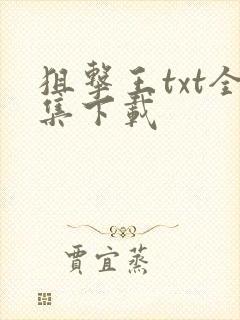 狙擊王txt全
集下載
賈宜蒸